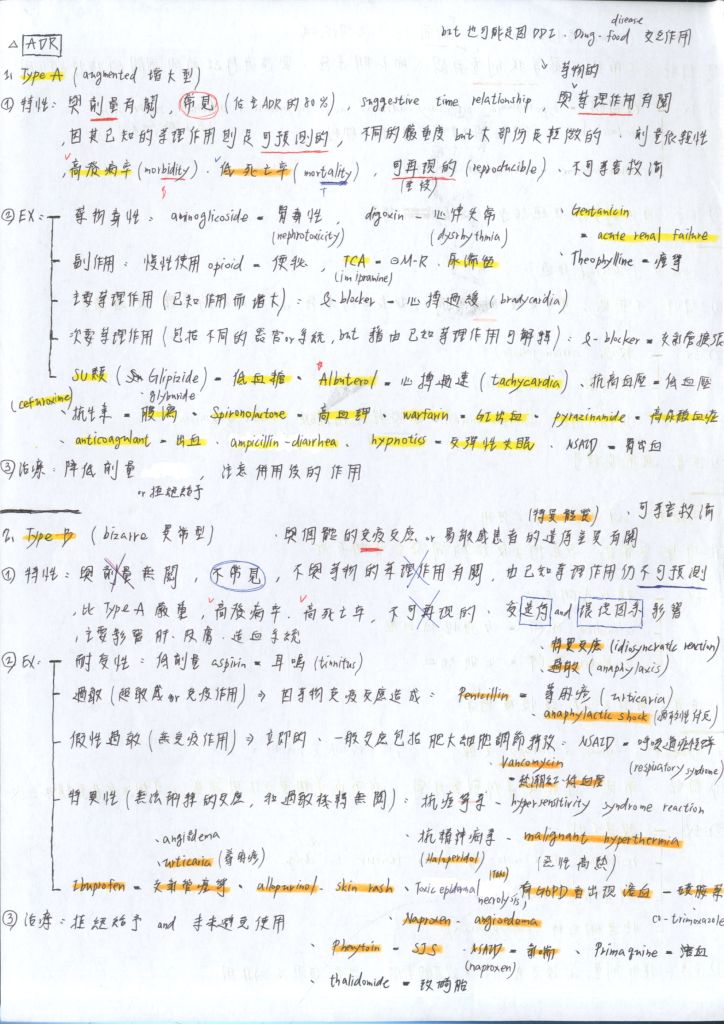 disease
but 也可能是因 DDI、Drug-food 交互作用
△ ADR
1. Type A (augmented 增大型)
藥物的
① 特性: 與劑量有關 常見 (佔全ADR的80%), suggestive time relationship, 與藥理作用有關
,因其已知的藥理作用則是可預測的, 不同的嚴重度 but 大部份反較微的、劑量依賴性
,高發病率 (morbidity)、低死亡率 (mortality), 可再現的 (reproducible)、不可事害救濟
② EX: 藥物毒性: aminoglicoside = 腎毒性, digoxin - 心律失常 、Gentamicin
(nephrotoxicity) (dysrhythmia) = acute renal failure
副作用: 慢性使用 opioid = 便秘, TCA = ⊖M-R、尿滯留 、Theophylline =
(imipramine)
主要藥理作用 (已知作用而增大): β-blocker = 心搏過緩 (bradycardia)
次要藥理作用 (包括不同的器官or系統, but 藉由已知藥理作用可解釋): β-blocker = 支氣管
SU類 (Glipizide) = 低血糖、Albuterol = 心搏過速 (tachycardia)、抗高血壓 = 低血壓
glyburide
(cefuroxime)
、抗生素 = 腹瀉、Spironolactone = 高血鉀、warfarin = GI出血、pyrazinamide = 高尿酸血症
、anticoagulant = 出血、ampicillin - diarrhea、hypnotics = 反彈性失眠、NSAID = 胃出血
③ 治療: 降低劑量 , 注意併用後的作用
or 拒絕給予
(特異體質)、可事害救濟
2. Type B (bizarre 異常型) 、與個體的免疫反應 or 易敏感患者的遺傳變異有關
① 特性: 與劑量無關, 不常見, 不與藥物的藥理作用有關, 由已知藥理作用仍不可預測
,比 Type A 嚴重, 高發病率、高死亡率, 不可再現的、受遺傳 and 環境因素影響
,主要影響 肝、皮膚、造血系統
② EX: 耐受性: 低劑量 aspirin = 耳鳴 (tinnitus)
、特異反應 (idiosyncratic reaction)
、過敏 (anaphylaxis)
過敏 (超敏感 or 免疫作用) ⇒ 因藥物免疫反應造成: Penicillin = 蕁麻疹 (urticaria)
、anaphylactic shock
假性過敏 (無免疫作用) ⇒ 立即的、一般反應包括肥大細胞調節釋放: NSAID = 呼吸道症候群
(respiratory syndrome)
Vancomycin
= 臉潮紅、低血壓
特異性 (無法解釋的反應, 和過敏機轉無關): 抗癌藥 - hypersensitivity syndrome reaction
、angiedema 、抗精神病藥 - malignant hyperthermia
、urticaria (蕁麻疹) (Haloperidol) (惡性高熱)
Ibuprofen = 支氣管痙攣、allopurinol - skin rash、Toxic epidermal necrolysis, 有G6PD者出現溶血 - 磺胺
(TEN)
co-trimoxazole
、Naproxen - angioedema
③ 治療: 拒絕給予 and 未來避免使用
、Phenytoin = SJS、NSAID = 氣喘、Primaquine = 溶血
(naproxen)
、thalidomide = 致畸胎